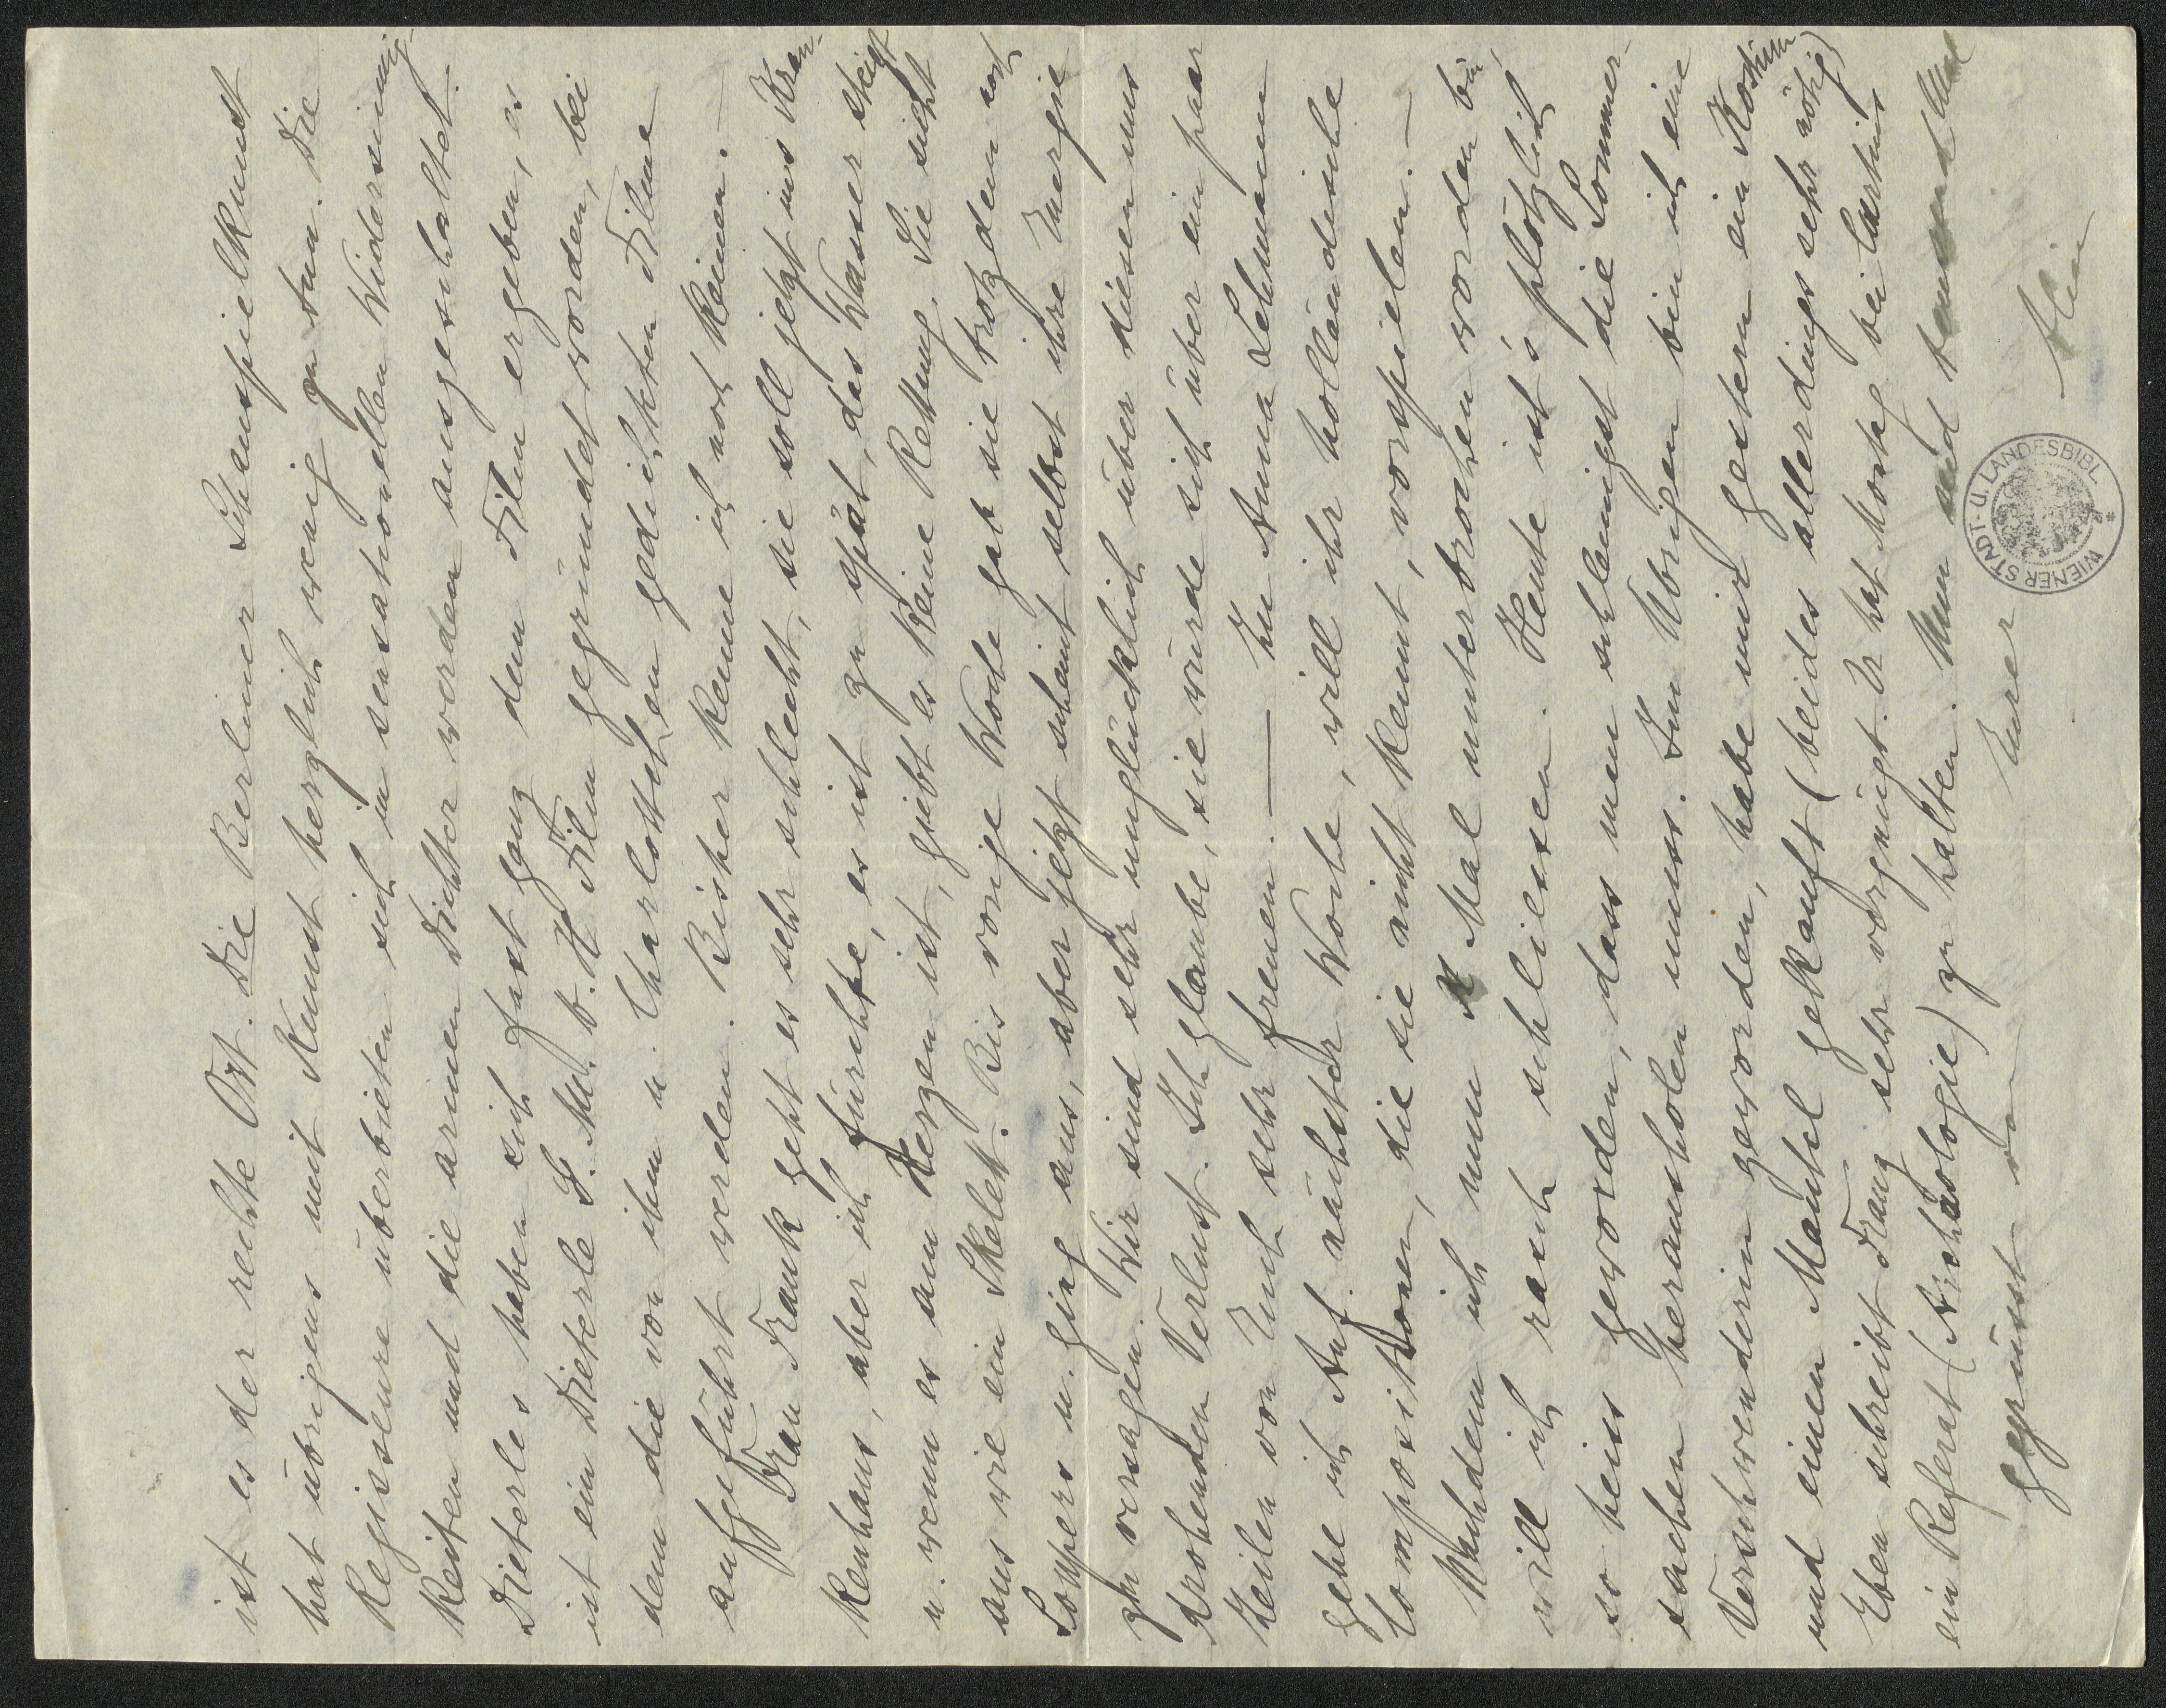 ist es der rechte Ort. Die Berliner Schauspielkunst
hat übrigens mit Kunst herzlich wenig zu tun. Die
Regisseure überbieten sich in sensationellen Widersinnig-
keiten und die armen Dichter werden ausgeschaltet.
Dieterles haben sich fast ganz dem Film ergeben, es
ist ein Dieterle G. M. b. H Film gegründet worden, bei
dem die von ihm u. Charlotten gedichteten Filme
aufgeführt werden. Bisher kenne ich noch keinen. —
Frau Frank geht es sehr schlecht, sie soll jetzt ins Kran-
kenhaus, aber ich fürchte, es ist zu spät, das Wasser steigt
u. wenn es am Herzen ist, giebt es keine Rettung. Sie sieht
aus wie ein Skelett. Bis vorige Woche gab sie trotzdem noch
Soupers u. ging aus, aber jetzt scheint selbst ihre Energie
zu versagen. Wir sind sehr unglücklich über diesen uns
drohenden Verlust. Ich glaube, sie würde sich über ein paar
Zeilen von Euch sehr freuen. — Zu Anna Lehmann
gehe ich Anf. nächster Woche, will ihr holländische
Componisten, die sie nicht kennt, vorspielen. —
Nachdem ich nun X Mal unterbrochen worden bin,
will ich rasch schliessen. Heute ist's plötzlich
so heiss geworden, dass man schleunigst die Sommer-
sachen herausholen muss. Im Übrigen bin ich eine
Verschwenderin geworden, habe mir gestern ein Kostüm
und einen Mantel gekauft (beides allerdings sehr nötig)
Eben schreibt Franz sehr vergnügt. Er hat Montag bei Curtius
ein Referat (Archäologie) zu halten. Nun seid tausend Mal
gegrüsst von Eurer
WIENER STADT- U. LANDESBIBL